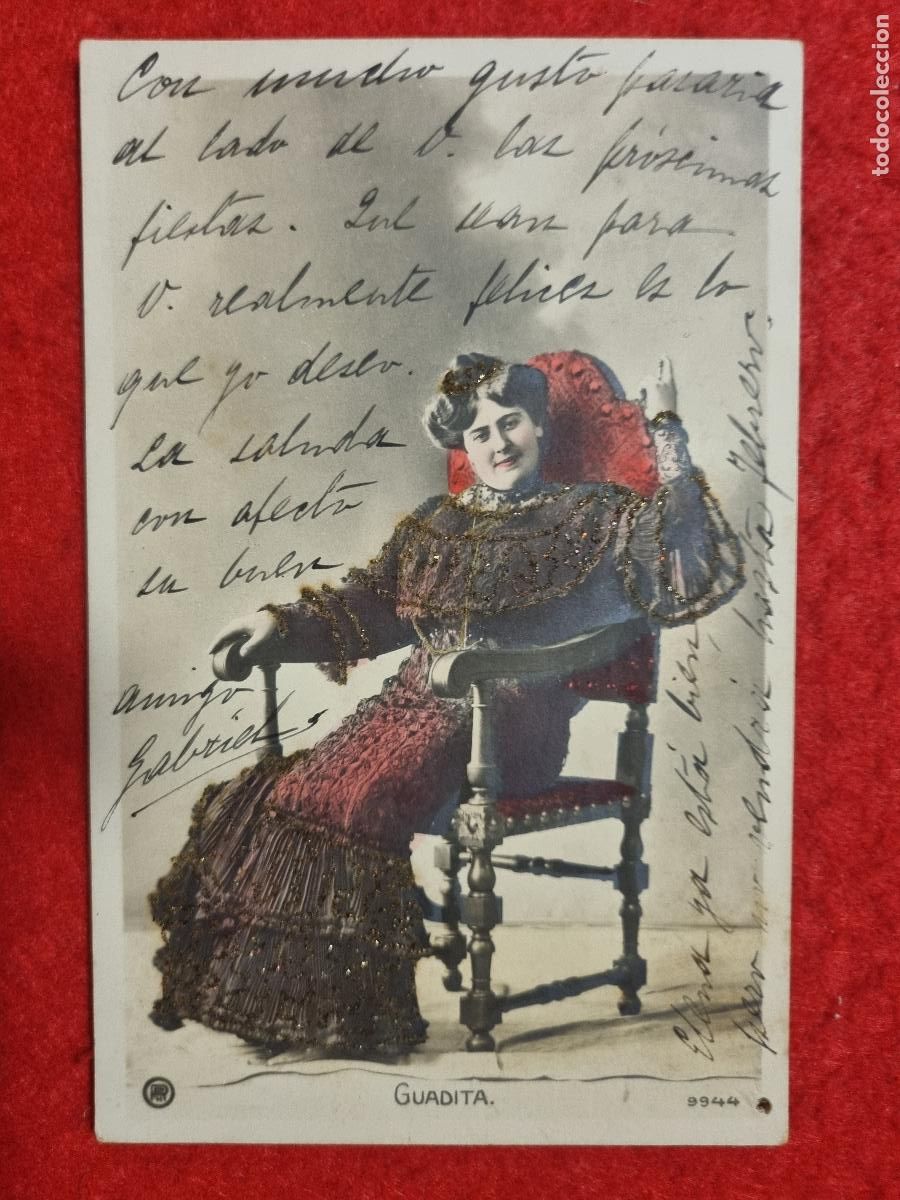 Con mucho gusto pasaria
al lado de V. las prósimas
fiestas. Que sean para
V. realmente felices es lo
que yo deseo.
La saluda
con afecto
su buen
amigo
Gabriel
Elena ya está bien,
pero no vendrá hasta febrero.
GUADITA.
9944
todocoleccion